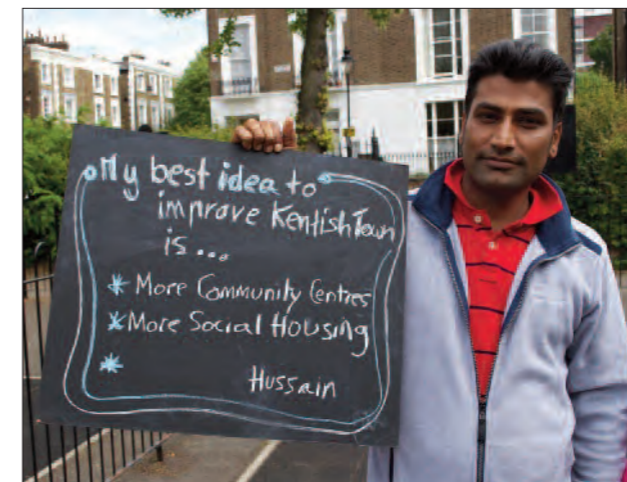 My best idea to
improve Kentish Town
is...
* More Community Centres
* More Social Housing
*
Hussain